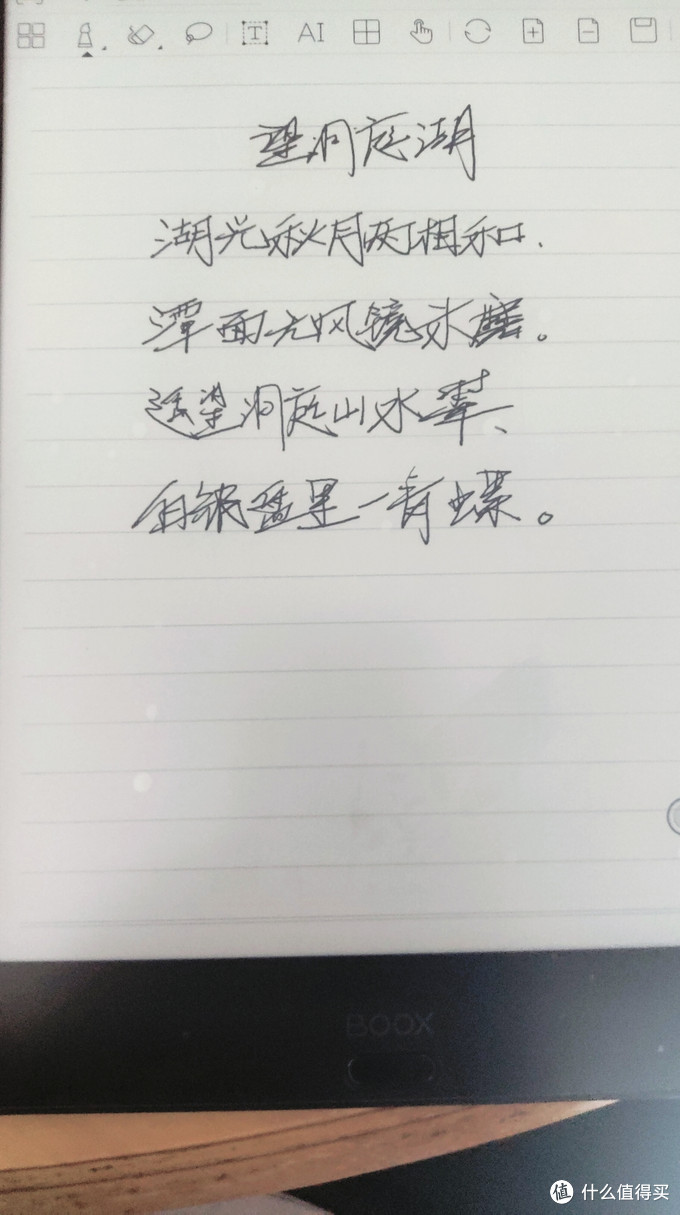 T AI
望洞庭湖
湖光秋月两相和.
潭面无风镜未磨。
遥望洞庭山水翠、
白银盘里一青螺。
BOOX
值 什么值得买